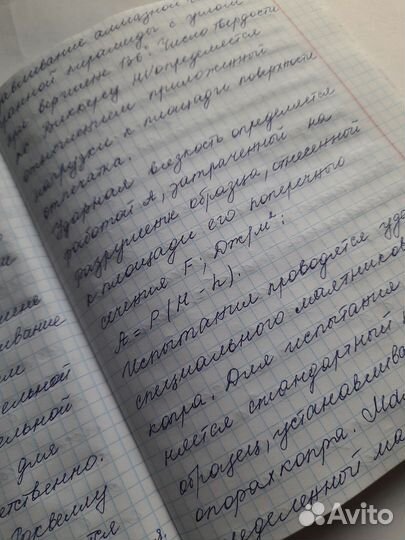 вливание алмазной
гранной пирамиды с углом
при вершине 136°. Число твердости
по Виккерсу HV определяется
отношением приложенной
нагрузки к площади поверхности
отпечатка.
Ударная вязкость определяется
работой A, затраченной на
разрушение образца, отнесенной
к площади его поперечного
сечения F; Дж/м²:
A = P(H - h).
Испытания проводятся уда
специального маятников
копра. Для испытания
няется стандартный
образец, устанавлива
опорах копра. Ма
ределенной ма
вание
ем
тельной
тельной
для
етственно.
Роквеллу
тся
Avito